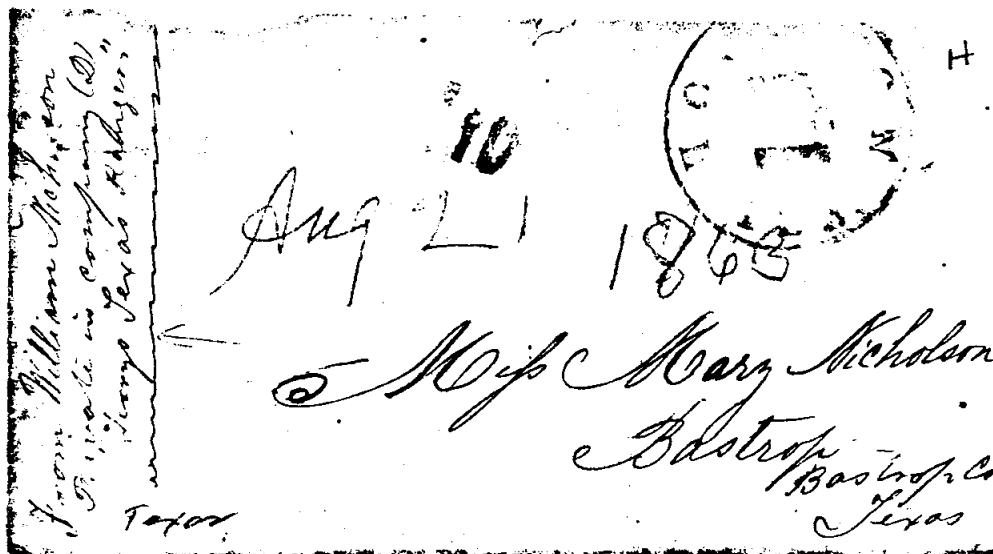 From William Nicholson
Private in company (D)
Texas Rangers"
"10
Aug 21 1863
H
Miss Mary Nicholson
Bastrop
Bastrop Co
Texas
Texas